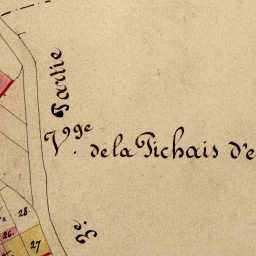 Partie
V.ge de la Pichais d'e
3.e
28.
26.
27